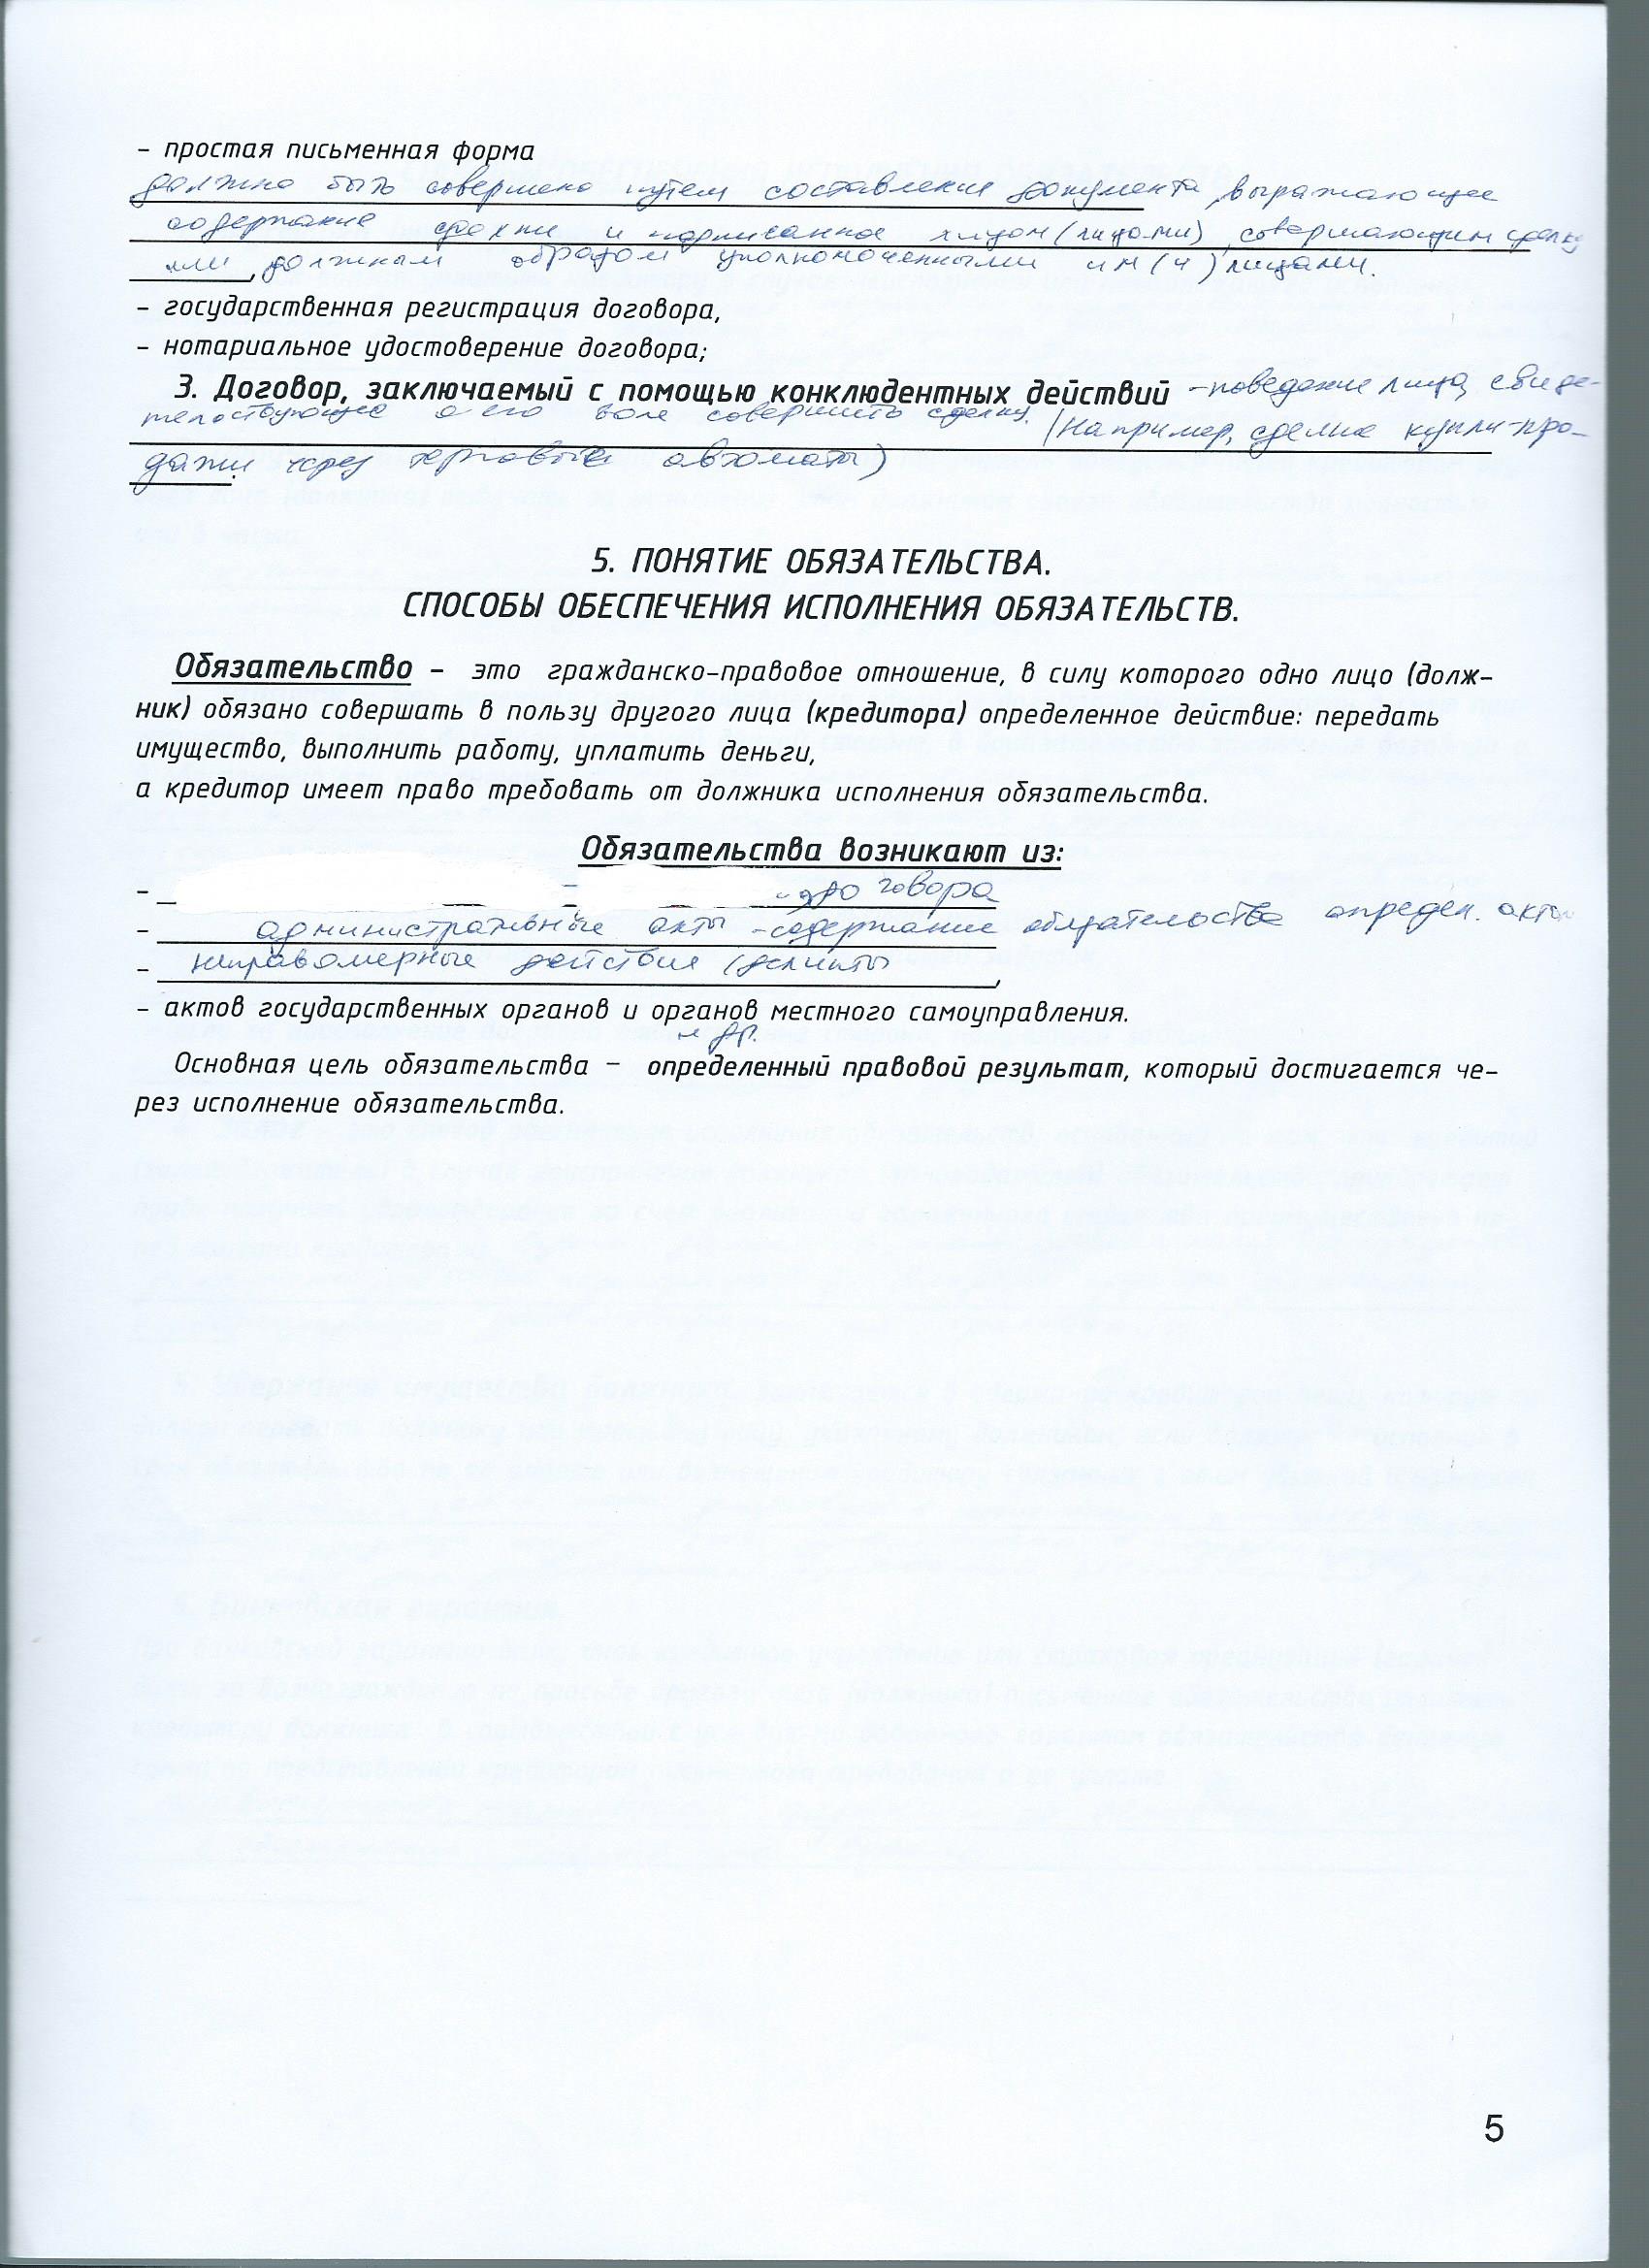 – простая письменная форма
должно быть совершено путем составления документа, выражающее
содержание сделки и подписанное лицом (лицами), совершающим сделку
или, должным образом уполномоченными им(и) лицами.
– государственная регистрация договора,
– нотариальное удостоверение договора;
3. Договор, заключаемый с помощью конклюдентных действий – поведение лица, свиде-
тельствующее о его воле совершить сделку. (Например, сделка купли-про-
дажи через торговые автоматы)
5. ПОНЯТИЕ ОБЯЗАТЕЛЬСТВА.
СПОСОБЫ ОБЕСПЕЧЕНИЯ ИСПОЛНЕНИЯ ОБЯЗАТЕЛЬСТВ.
Обязательство – это гражданско-правовое отношение, в силу которого одно лицо (долж-
ник) обязано совершать в пользу другого лица (кредитора) определенное действие: передать
имущество, выполнить работу, уплатить деньги,
а кредитор имеет право требовать от должника исполнения обязательства.
Обязательства возникают из:
– договора
– административные акты – содержание обязательства определ. актом
– неправомерные действия (деликты ,
– актов государственных органов и органов местного самоуправления.
и др.
Основная цель обязательства – определенный правовой результат, который достигается че-
рез исполнение обязательства.
5